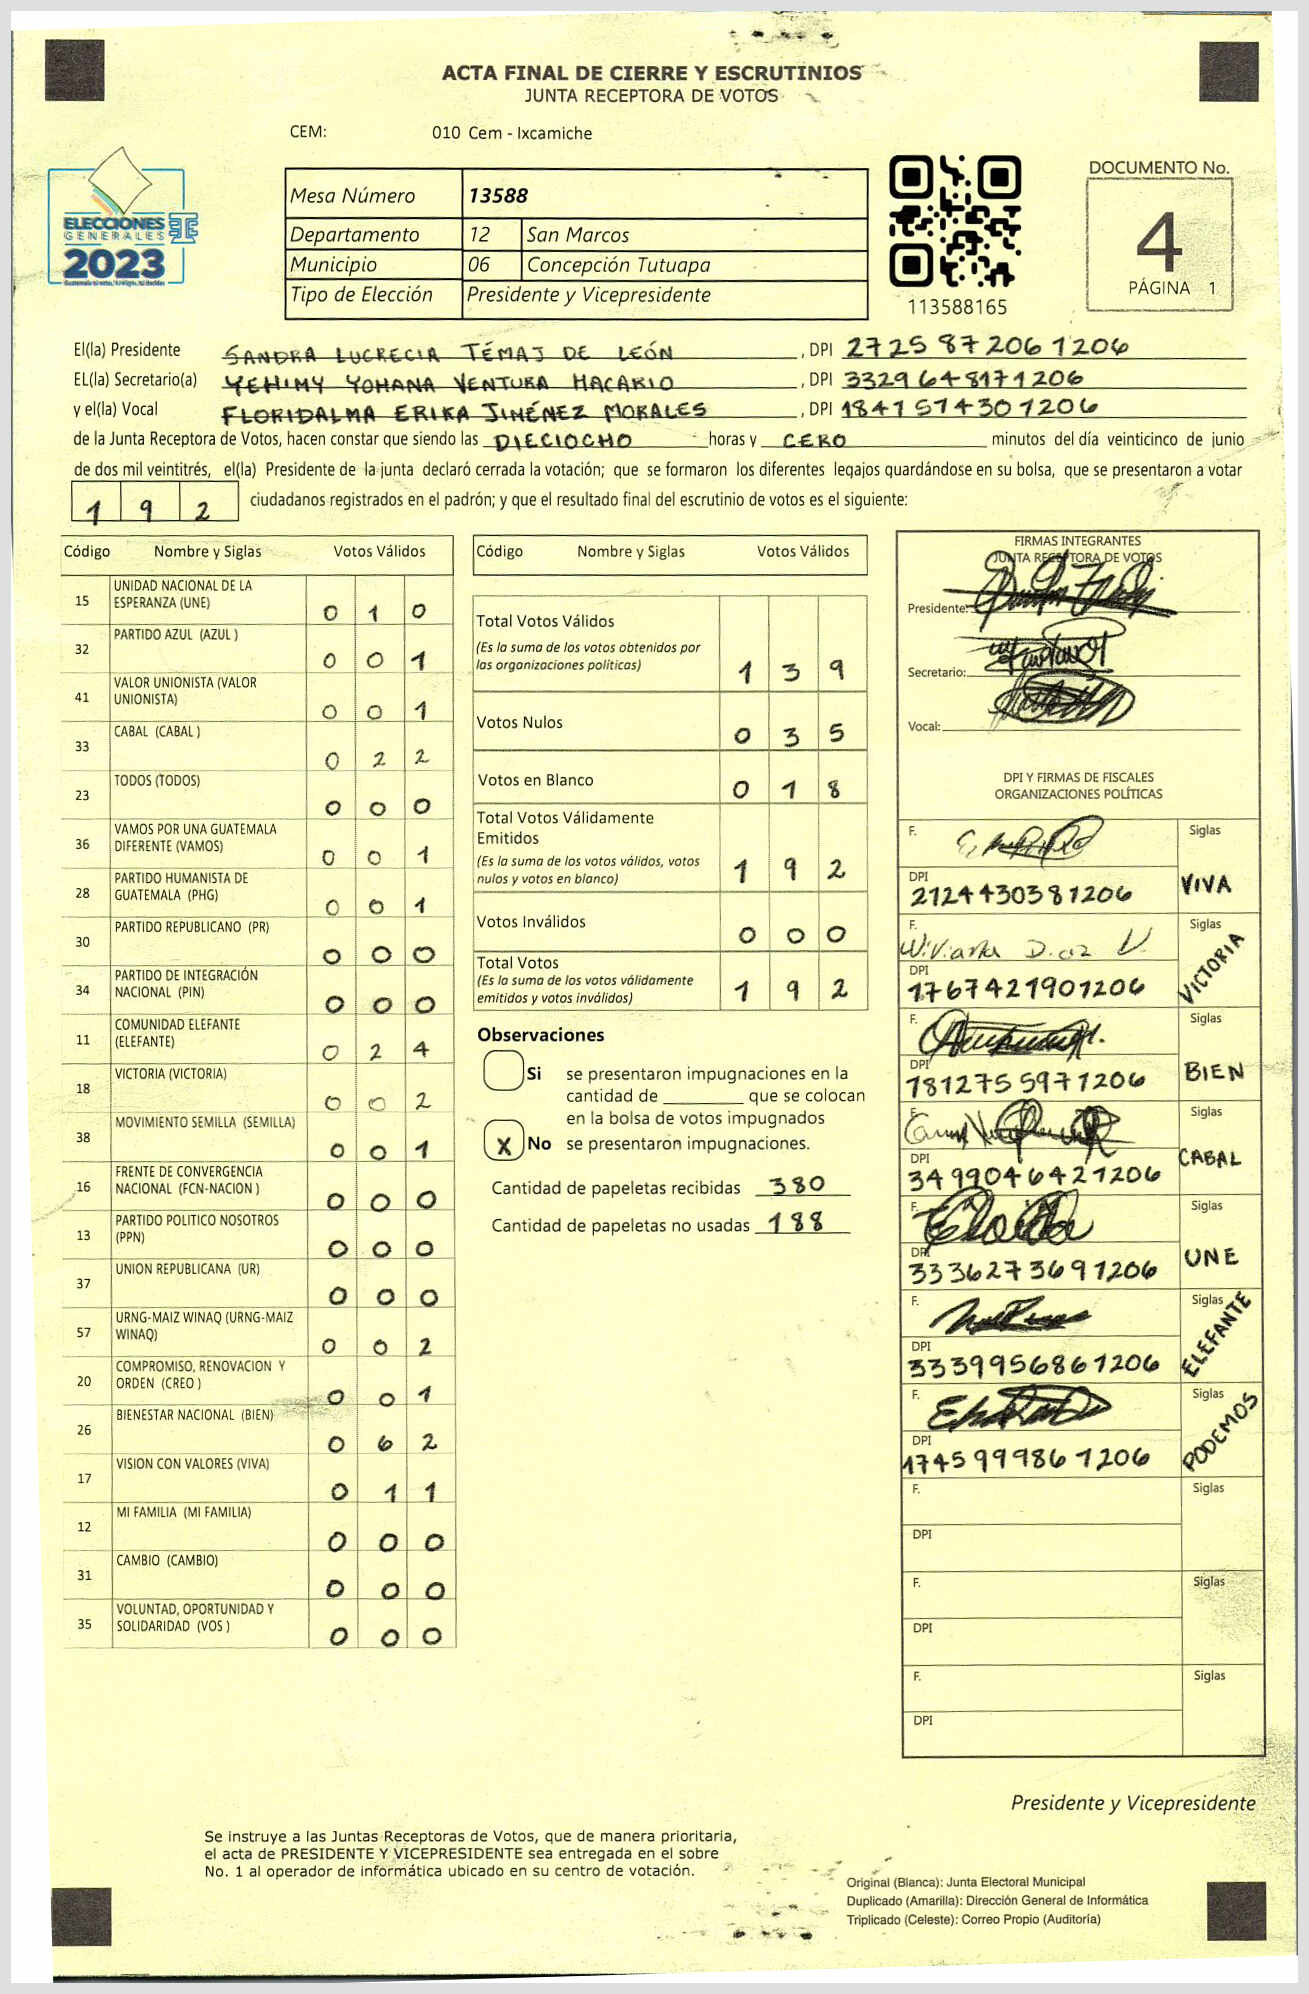 ACTA FINAL DE CIERRE Y ESCRUTINIOS
JUNTA RECEPTORA DE VOTOS
CEM: 010 Cem - Ixcamiche
ELECCIONES
GENERALES
2023
Mesa Número 13588
Departamento 12 San Marcos
Municipio 06 Concepción Tutuapa
Tipo de Elección Presidente y Vicepresidente
113588165
DOCUMENTO No.
4
PÁGINA 1
El(la) Presidente SANDRA LUCRECIA TÉMAJ DE LEÓN , DPI 2725 87206 1206
EL(la) Secretario(a) YEHIMY YOHANA VENTURA MACARIO , DPI 3329648171206
y el(la) Vocal FLORIDALMA ERIKA JIMÉNEZ MORALES , DPI 1841574301206
de la Junta Receptora de Votos, hacen constar que siendo las DIECIOCHO horas y CERO minutos del día veinticinco de junio
de dos mil veintitrés, el(la) Presidente de la junta declaró cerrada la votación; que se formaron los diferentes legajos quardándose en su bolsa, que se presentaron a votar
1 9 2 ciudadanos registrados en el padrón; y que el resultado final del escrutinio de votos es el siguiente:
Código Nombre y Siglas Votos Válidos
15 UNIDAD NACIONAL DE LA
ESPERANZA (UNE) 0 1 0
32 PARTIDO AZUL (AZUL ) 0 0 1
41 VALOR UNIONISTA (VALOR
UNIONISTA) 0 0 1
33 CABAL (CABAL ) 0 2 2
23 TODOS (TODOS) 0 0 0
36 VAMOS POR UNA GUATEMALA
DIFERENTE (VAMOS) 0 0 1
28 PARTIDO HUMANISTA DE
GUATEMALA (PHG) 0 0 1
30 PARTIDO REPUBLICANO (PR) 0 0 0
34 PARTIDO DE INTEGRACIÓN
NACIONAL (PIN) 0 0 0
11 COMUNIDAD ELEFANTE
(ELEFANTE) 0 2 4
18 VICTORIA (VICTORIA) 0 0 2
38 MOVIMIENTO SEMILLA (SEMILLA) 0 0 1
16 FRENTE DE CONVERGENCIA
NACIONAL (FCN-NACION ) 0 0 0
13 PARTIDO POLITICO NOSOTROS
(PPN) 0 0 0
37 UNION REPUBLICANA (UR) 0 0 0
57 URNG-MAIZ WINAQ (URNG-MAIZ
WINAQ) 0 0 2
20 COMPROMISO, RENOVACION Y
ORDEN (CREO ) 0 0 1
26 BIENESTAR NACIONAL (BIEN) 0 6 2
17 VISION CON VALORES (VIVA) 0 1 1
12 MI FAMILIA (MI FAMILIA) 0 0 0
31 CAMBIO (CAMBIO) 0 0 0
35 VOLUNTAD, OPORTUNIDAD Y
SOLIDARIDAD (VOS ) 0 0 0
Código Nombre y Siglas Votos Válidos
Total Votos Válidos
(Es la suma de los votos obtenidos por
las organizaciones políticas) 1 3 9
Votos Nulos 0 3 5
Votos en Blanco 0 1 8
Total Votos Válidamente
Emitidos
(Es la suma de los votos válidos, votos
nulos y votos en blanco) 1 9 2
Votos Inválidos 0 0 0
Total Votos
(Es la suma de los votos válidamente
emitidos y votos inválidos) 1 9 2
Observaciones
Si se presentaron impugnaciones en la
cantidad de ________ que se colocan
en la bolsa de votos impugnados
X No se presentaron impugnaciones.
Cantidad de papeletas recibidas 380
Cantidad de papeletas no usadas 188
FIRMAS INTEGRANTES
JUNTA RECEPTORA DE VOTOS
Presidente:
Secretario:
Vocal:
DPI Y FIRMAS DE FISCALES
ORGANIZACIONES POLÍTICAS
F. Siglas
DPI
2124430381206 VIVA
F. Viviana Diaz V. Siglas
DPI
1767421901206 VICTORIA
F. Siglas
DPI
1812755971206 BIEN
F. Siglas
DPI
3499046421206 CABAL
F. Siglas
DPI
3336273691206 UNE
F. Siglas
DPI
3339956861206 ELEFANTE
F. Siglas
DPI
1745999861206 PODEMOS
F. Siglas
DPI
F. Siglas
DPI
F. Siglas
DPI
Presidente y Vicepresidente
Se instruye a las Juntas Receptoras de Votos, que de manera prioritaria,
el acta de PRESIDENTE Y VICEPRESIDENTE sea entregada en el sobre
No. 1 al operador de informática ubicado en su centro de votación.
Original (Blanca): Junta Electoral Municipal
Duplicado (Amarilla): Dirección General de Informática
Triplicado (Celeste): Correo Propio (Auditoría)